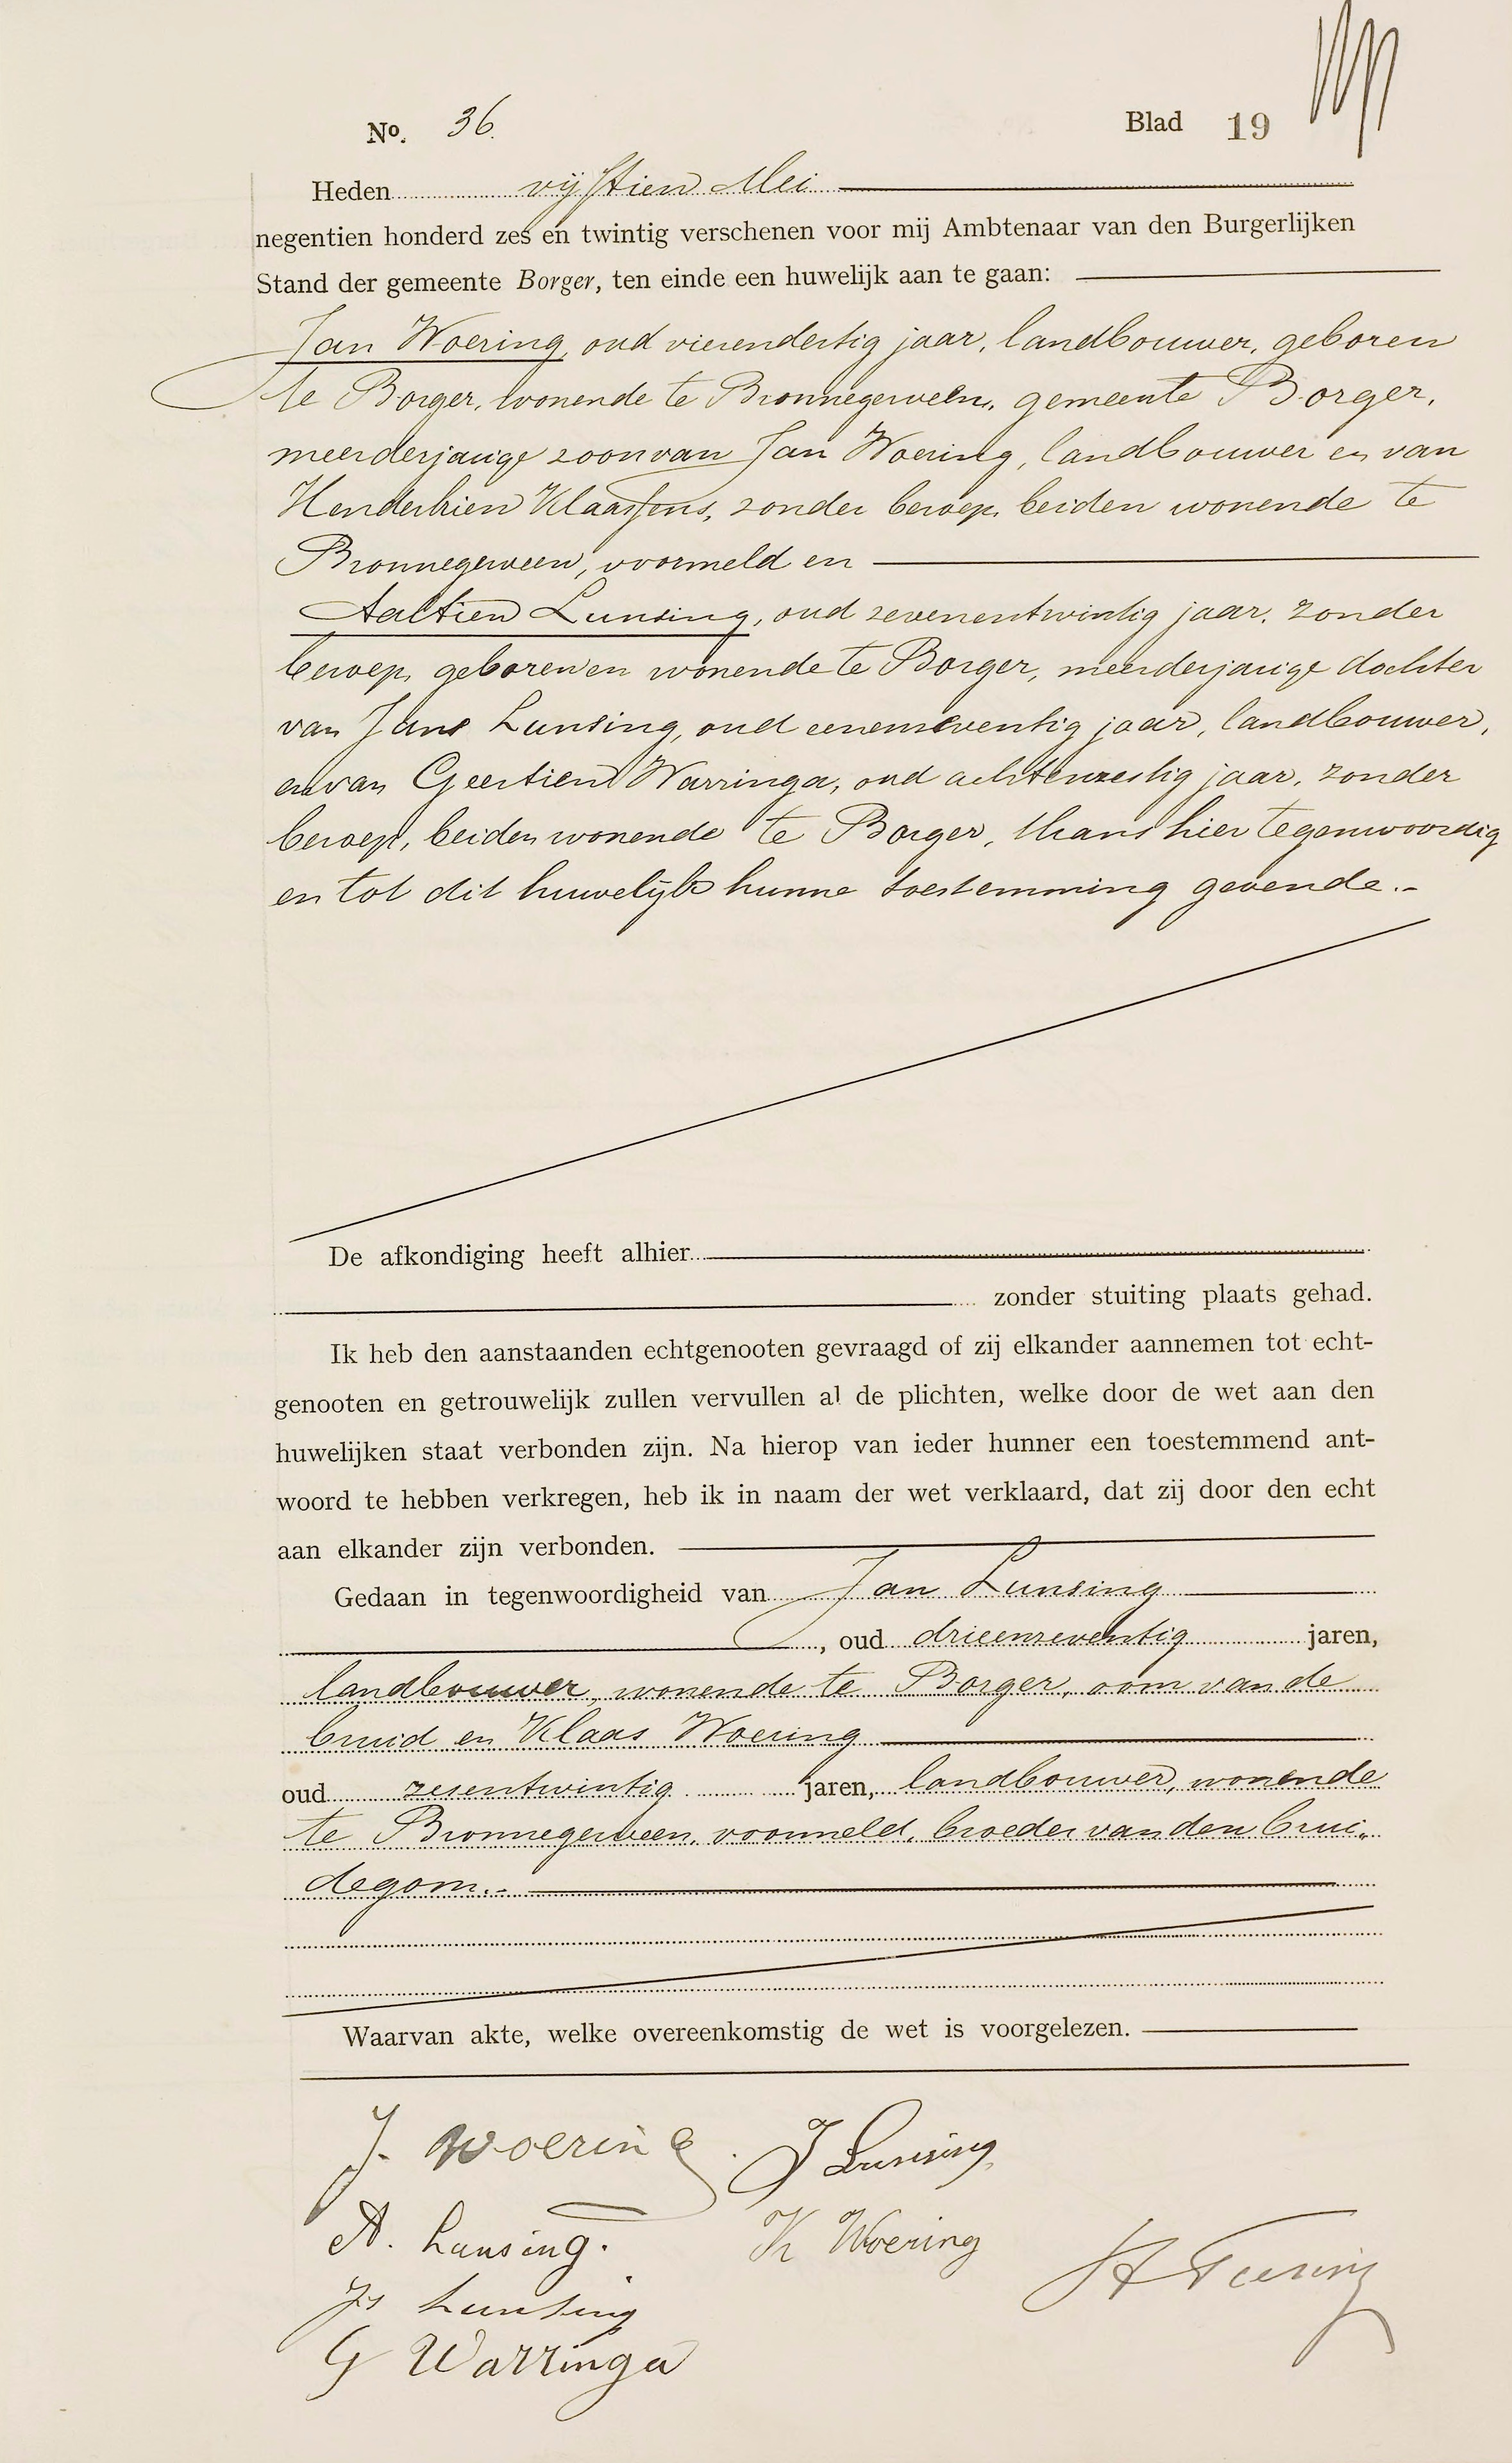 No. 36.
Blad 19
Heden vijftien Mei
negentien honderd zes en twintig verschenen voor mij Ambtenaar van den Burgerlijken
Stand der gemeente Borger, ten einde een huwelijk aan te gaan:
Jan Woering, oud vierendertig jaar, landbouwer, geboren
te Borger, wonende te Bronnegerveen, gemeente Borger,
meerderjarige zoon van Jan Woering, landbouwer en van
Henderkien Klaassens, zonder beroep, beiden wonende te
Bronnegerveen, voormeld en
Aaltien Lunsing, oud zevenentwintig jaar, zonder
beroep, geboren en wonende te Borger, meerderjarige dochter
van Jans Lunsing, oud eenenzeventig jaar, landbouwer,
en van Geertien Warringa, oud achtenzestig jaar, zonder
beroep, beiden wonende te Borger, thans hier tegenwoordig
en tot dit huwelijk hunne toestemming gevende.-
De afkondiging heeft alhier
zonder stuiting plaats gehad.
Ik heb den aanstaanden echtgenooten gevraagd of zij elkander aannemen tot echt-
genooten en getrouwelijk zullen vervullen al de plichten, welke door de wet aan den
huwelijken staat verbonden zijn. Na hierop van ieder hunner een toestemmend ant-
woord te hebben verkregen, heb ik in naam der wet verklaard, dat zij door den echt
aan elkander zijn verbonden.
Gedaan in tegenwoordigheid van Jan Lunsing
, oud drieenzeventig jaren,
landbouwer, wonende te Borger, oom van de
bruid en Klaas Woering
oud zesentwintig jaren, landbouwer, wonende
te Bronnegerveen, voormeld, broeder van den brui„
degom.-
Waarvan akte, welke overeenkomstig de wet is voorgelezen.
J. Woering. J Lunsing
A. Lunsing. K Woering
Js Lunsing
G Warringa